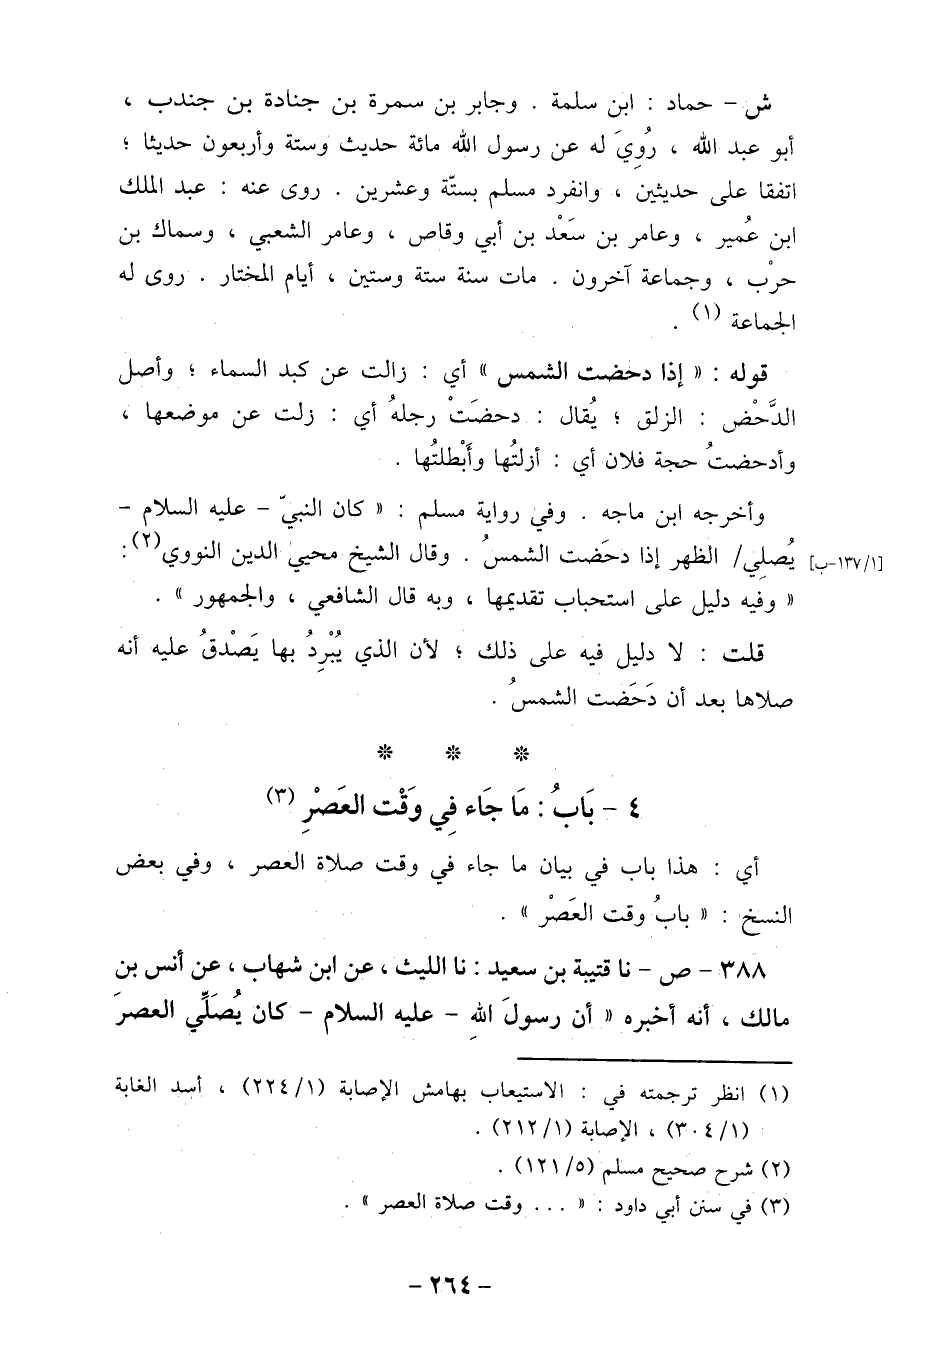 ش – حماد : ابن سلمة . وجابر بن سمرة بن جنادة بن جندب ،
أبو عبد الله ، رُوِيَ له عن رسول الله مائة حديث وستة وأربعون حديثا ؛
اتفقا على حديثين ، وانفرد مسلم بستّة وعشرين . روى عنه : عبد الملك
ابن عُمير ، وعامر بن سَعْد بن أبي وقاص ، وعامر الشعبي ، وسماك بن
حرْب ، وجماعة آخرون . مات سنة ستة وستين ، أيام المختار . روى له
الجماعة (١) .
قوله : « إذا دحضت الشمس » أي : زالت عن كبد السماء ؛ وأصل
الدَّحْض : الزلق ؛ يُقال : دحضَتْ رجلهُ أي : زلت عن موضعها ،
وأدحضتُ حجة فلان أي : أزلتُها وأَبْطلتُها .
وأخرجه ابن ماجه . وفي رواية مسلم : « كان النبيّ – عليه السلام –
[١/١٣٧-ب] يُصلِي/ الظهر إذا دحَضت الشمسُ . وقال الشيخ محيي الدين النووي(٢):
« وفيه دليل على استحباب تقديمها ، وبه قال الشافعي ، والجمهور » .
قلت : لا دليل فيه على ذلك ؛ لأن الذي يُبْرِدُ بها يَصْدقُ عليه أنه
صلاها بعد أن دَحَضت الشمسُ .
* * *
٤ – بَابُ : مَا جَاء فِي وَقْت العَصْرِ (٣)
أي : هذا باب في بيان ما جاء في وقت صلاة العصر ، وفي بعض
النسخ : « بابُ وقت العَصْر » .
٣٨٨ – ص – نا قتيبة بن سعيد : نا الليث ، عن ابن شهاب ، عن أنس بن
مالك ، أنه أخبره « أن رسولَ اللهِ – عليه السلام – كان يُصَلِّي العصرَ
(١) انظر ترجمته في : الاستيعاب بهامش الإصابة (١/ ٢٢٤) ، أسد الغابة
(١/ ٣٠٤) ، الإصابة (١/ ٢١٢) .
(٢) شرح صحيح مسلم (٥/ ١٢١) .
(٣) في سنن أبي داود : « ... وقت صلاة العصر » .
– ٢٦٤ –